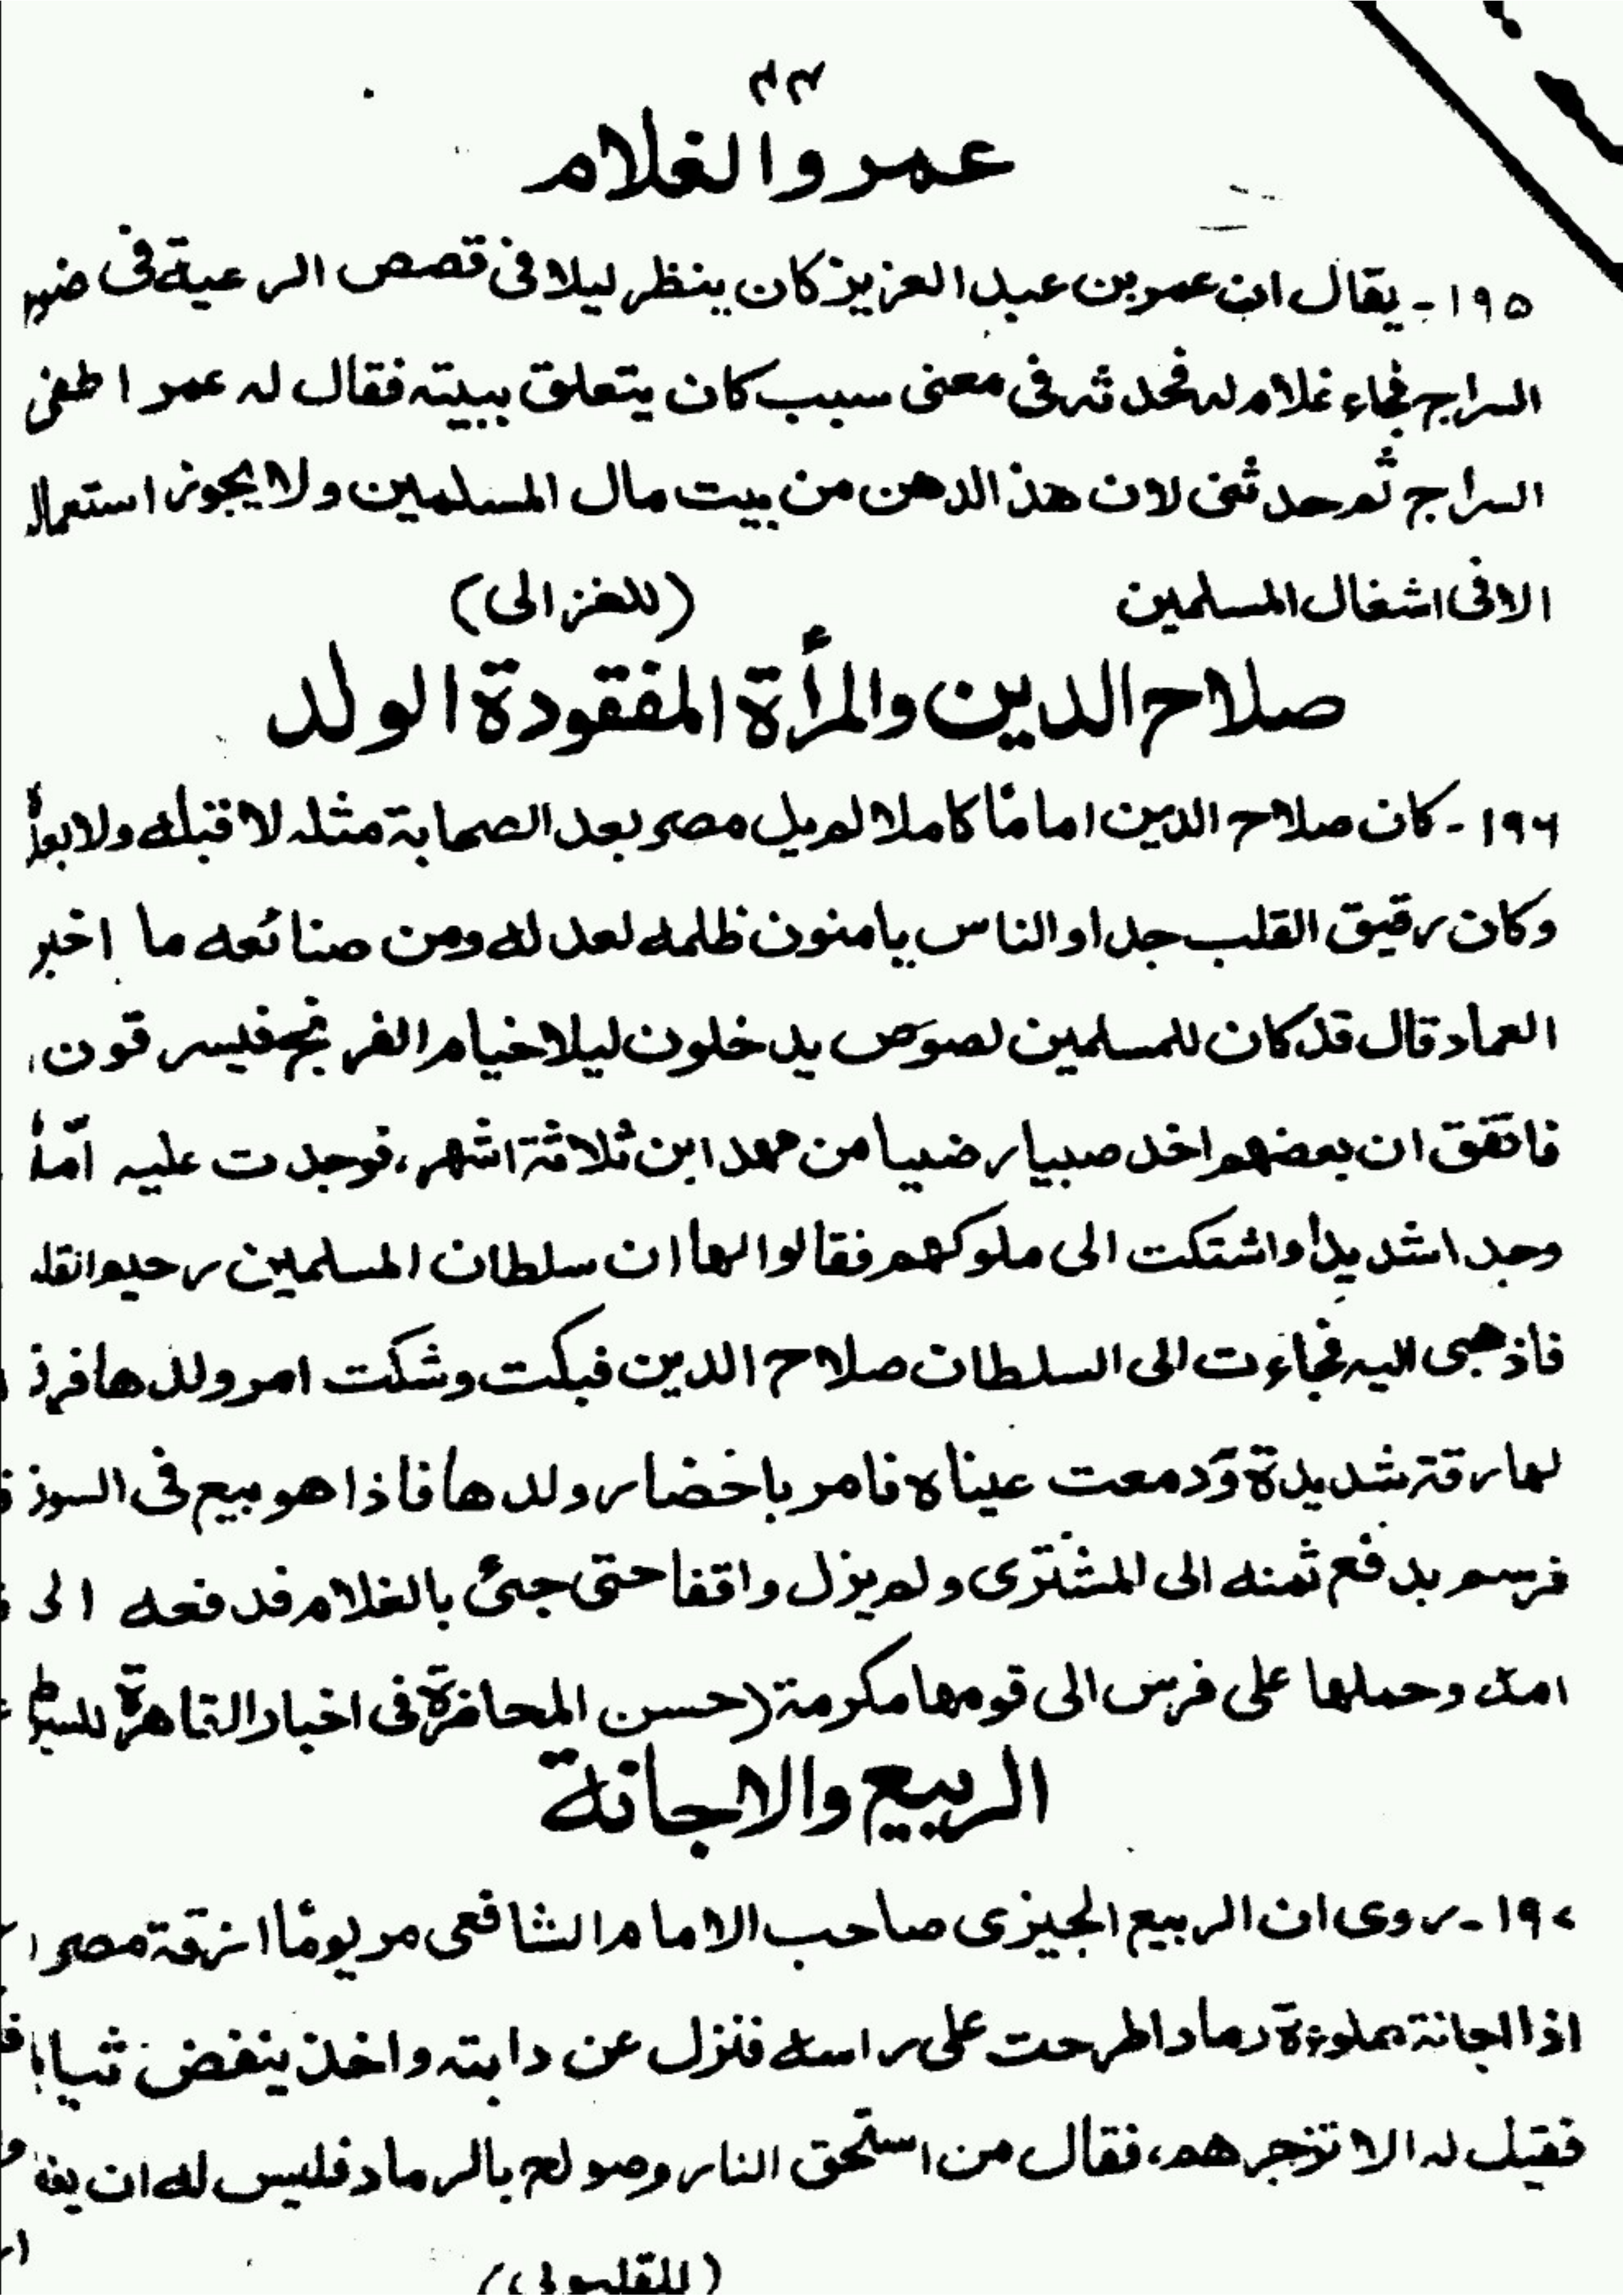 ٣٣
عمر والغلام
١٩٥ - يقال ان عمر بن عبد العزيز كان ينظر ليلا فى قصص الرعية فى ضوء
السراج فجاء غلام له فحدثه فى معنى سبب كان يتعلق ببيته فقال له عمر اطفئ
السراج ثم حدثنى لان هذ الدهن من بيت مال المسلمين ولا يجوز استعمال
الا فى اشغال المسلمين (للغزالى)
صلاح الدين والمرأة المفقودة الولد
١٩٦ - كان صلاح الدين امامًا كاملا لم يل مصر بعد الصحابة مثله لا قبله ولا بعده
وكان رقيق القلب جدا والناس يامنون ظلمه لعدله ومن صنائعه ما اخبر
العماد قال قد كان للمسلمين لصوص يدخلون ليلا خيام الفرنج فيسرقون
فاتفق ان بعضهم اخذ صبيا رضيا من مهد ابن ثلاثة اشهر، فوجدت عليه امّه
وجدا شديدا واشتكت الى ملوكهم فقالوا لها ان سلطان المسلمين رحيم القلب
فاذهبى اليه فجاءت الى السلطان صلاح الدين فبكت وشكت امر ولدها فرق
لها رقة شديدة ودمعت عيناه فامر باخضار ولدها فاذا هو بيع فى السوق
فرسم بدفع ثمنه الى المشترى ولم يزل واقفا حتى جئ بالغلام فدفعه الى
امه وحملها على فرس الى قومها مكرمة (حسن المحاضرة فى اخبار القاهرة للسيوطى
الربيع والاجانة
١٩٧ - روى ان الربيع الجيزى صاحب الامام الشافعى مر يومًا ازقة مصر
اذا اجانة مملوءة رمادا طرحت على راسه فنزل عن دابته واخذ ينفض ثيابه
فقيل له الا تزجرهم، فقال من استحق النار وصولح بالرماد فليس له ان
(للقليوبى)